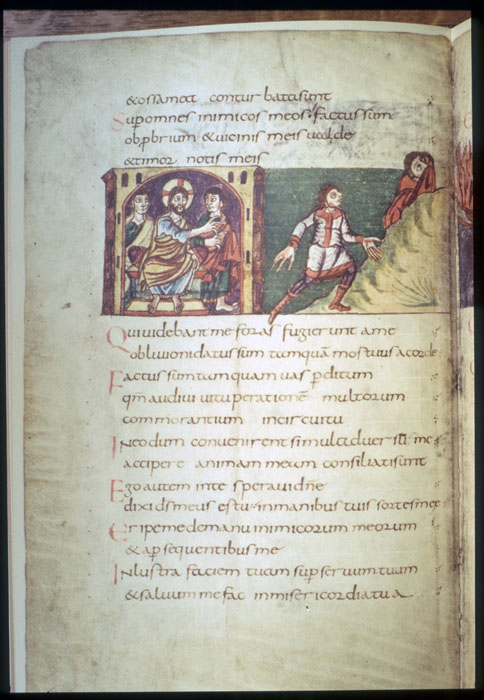 & ossa mea conturbata sunt
Sup omnes inimicos meos factus sum
obprbrium & uicinis meis ualde
& timor notis meis
Qui uidebant me foras fugierunt a me
obliuioni datus sum tamquã mortuus a corde
Factus sum tamquam uas pditum
qm̃ audiui uituperationẽ multorum
commorantium in circuitu
In eo dum conuenirent simul aduersũ me
accipere animam meam consiliati sunt
Ego autem in te speraui dñe
dixi ds meus es tu in manibus tuis sortes meae
Eripe me de manu inimicorum meorum
& a psequentibus me
Inlustra faciem tuam sup seruum tuum
& saluum me fac in misericordia tua